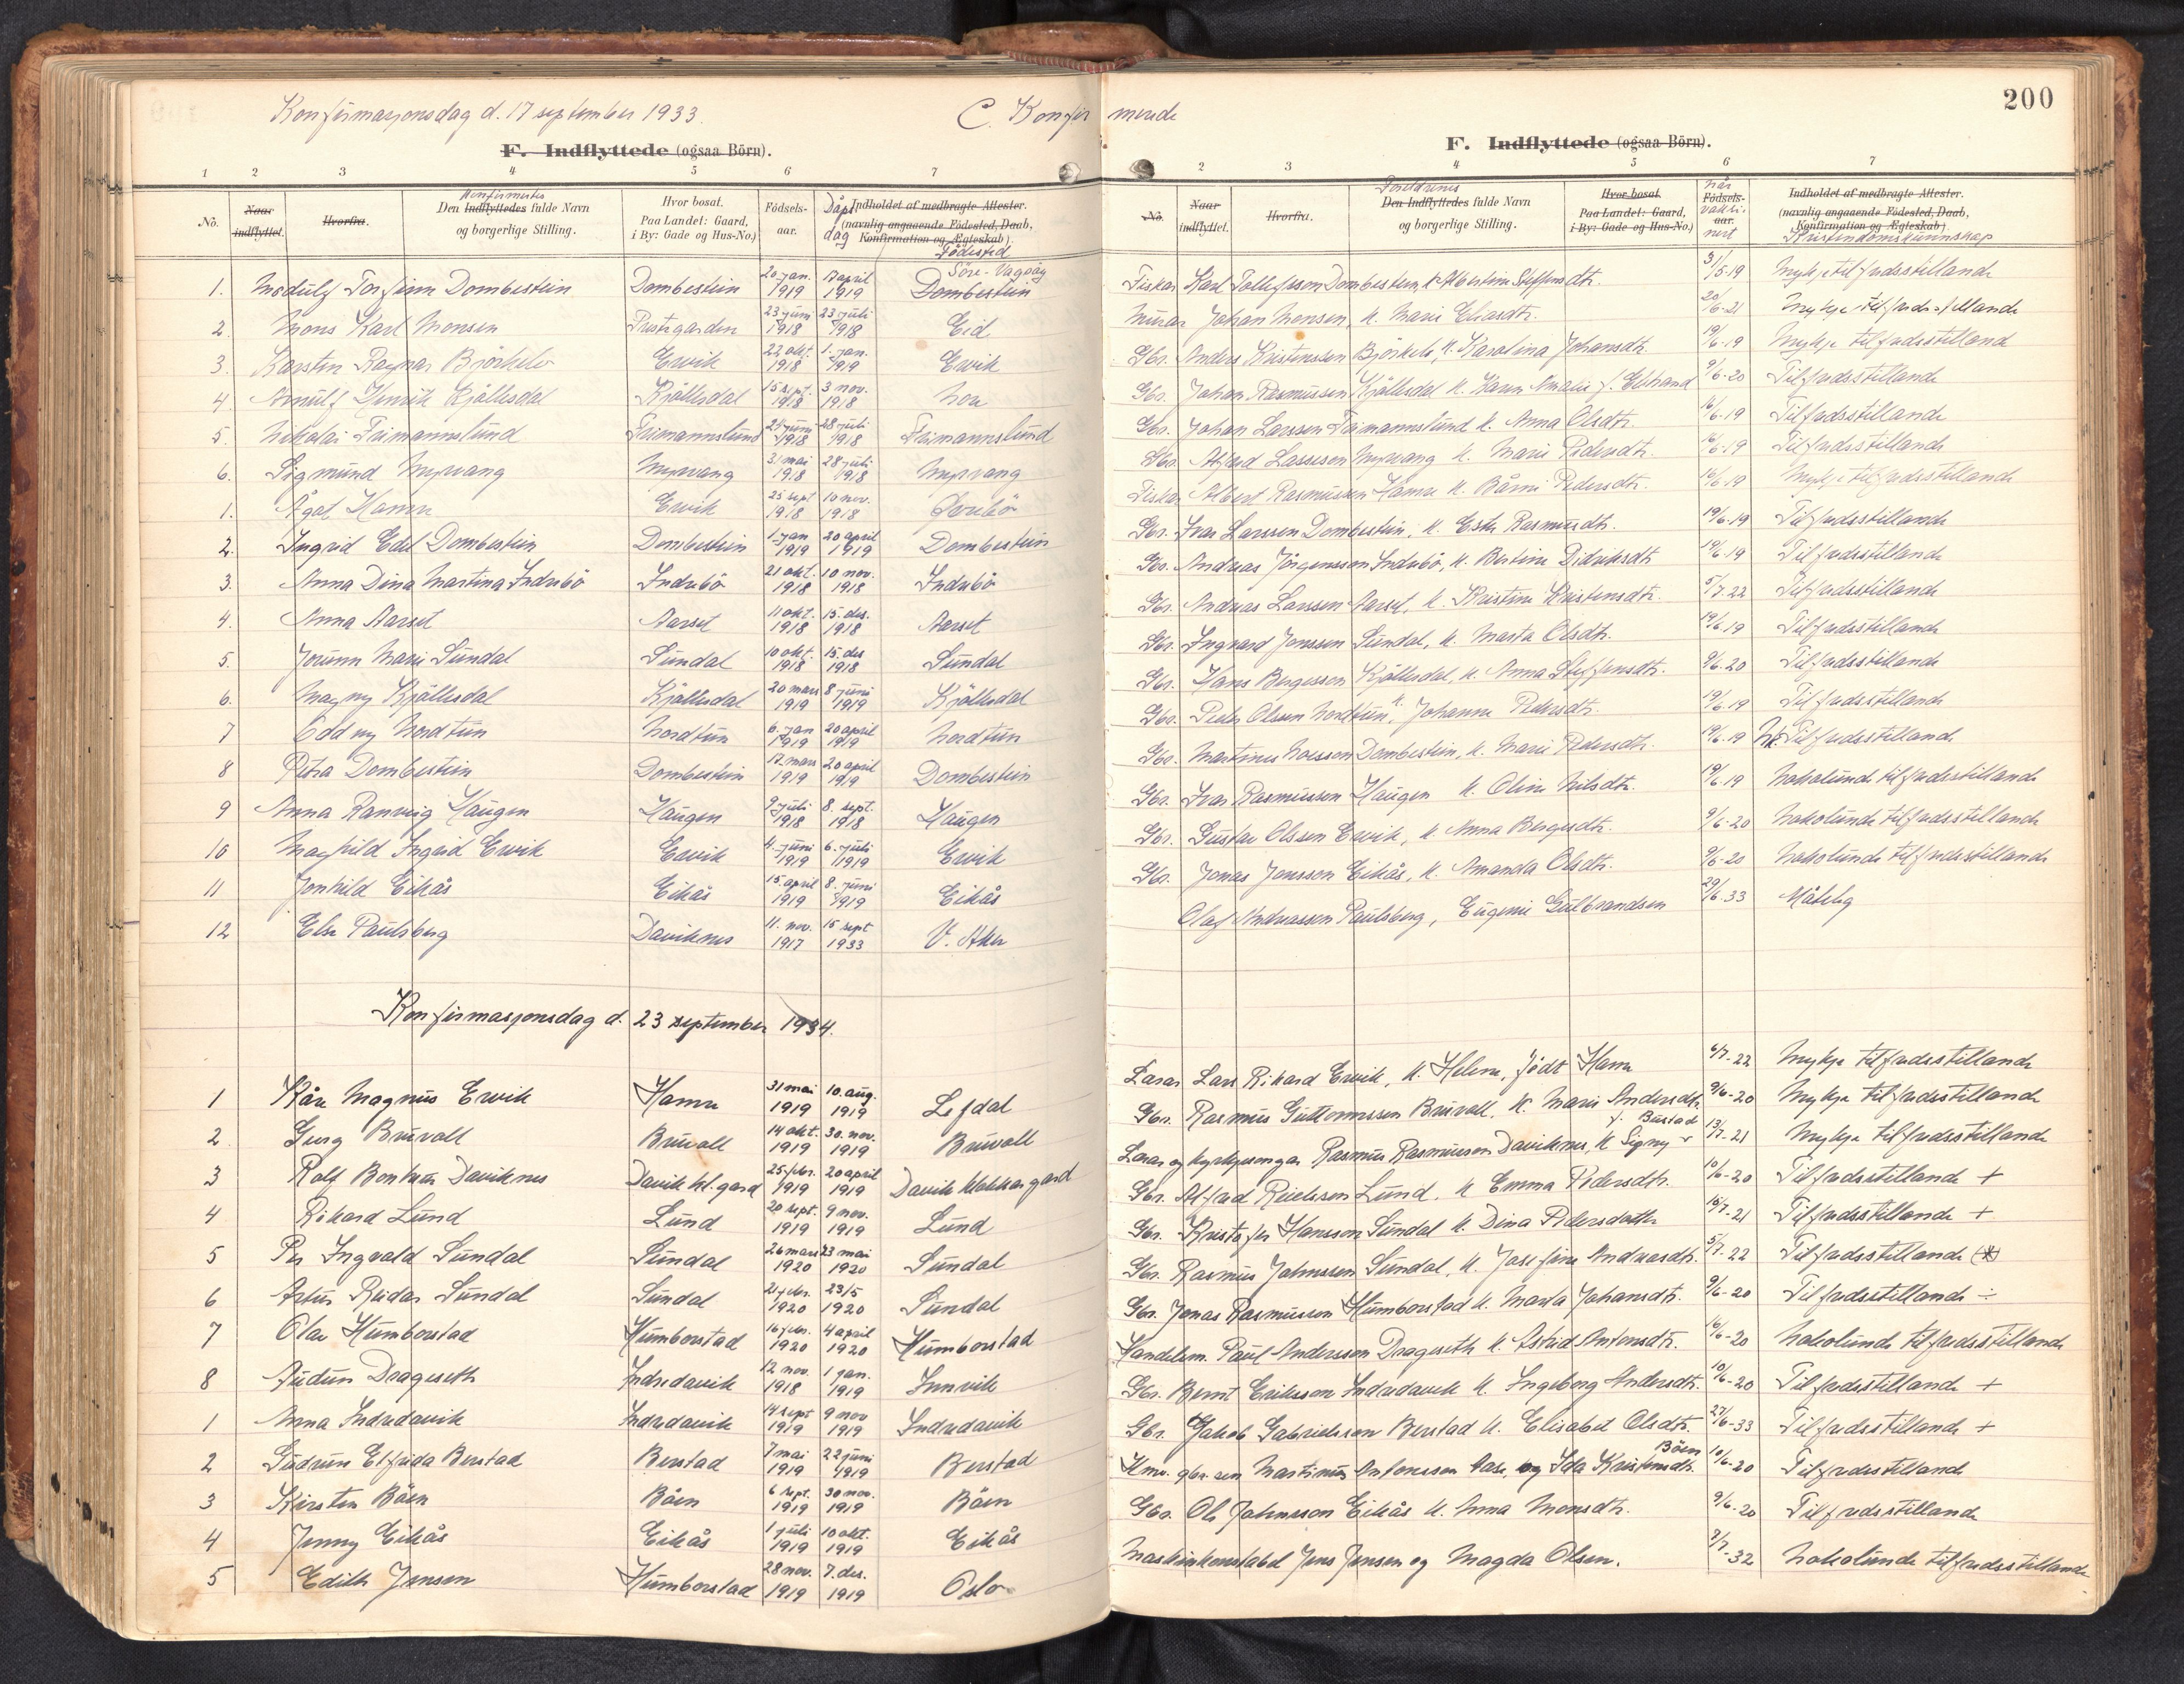 Konfirmasjonsdag d. 17 september 1933. C. Konfir
F. Indflyttede (ogsaa Börn).
1 2 3 4 5 6 7
No. Naar indflyttet. Hvorfra. Konfirmertes Den Indflyttedes fulde Navn og borgerlige Stilling. Hvor bosat. Paa Landet: Gaard, i By: Gade og Hus-No.) Födsels-aar. Dåpsdag Indholdet af medbragte Attester. (navnlig angaaende Födested, Daab, Konfirmation og Ægteskab) Fødested
1. Modulf Torfinn Dombestein Dombestein 20 jan. 1919 17 april 1919 Söre-Vagsöy Dombestein
2 Mons Karl Monsen Prestegarden 23 juni 1918 23 juli 1918 Eid
3. Karsten Ragnar Björkelo Ervik 22 okt. 1918 1. jan. 1919 Ervik
4 Arnulf Henrik Kjøllesdal Kjøllesdal 15 sept. 1918 3 nov. 1918 Nore
5. Nikolai Freimannslund Freimannslund 24 juni 1918 28 juli 1918 Freimannslund
6. Sigmund Myrvang Myrvang 31 mai 1918 28 juli 1918 Myrvang
1. Ågot Hamre Ervik 25 sept 1918 10 nov. 1918
2. Ingrid Edel Dombestein Dombestein 1. jan 1919 20 april 1919 Dombestein
3. Anna Dina Martina Indrebö Indrebö 21 okt. 1918 10 nov. 1918 Indrebö
4. Anna Aarset Aarset 11 okt. 1918 15. des. 1918 Aarset
5. Jorunn Marie Sundal Sundal 10 okt. 1918 15. des 1918 Sundal
6. Magny Kjøllesdal Kjøllesdal 20 mars 1919 8 juni 1919 Kjøllesdal
7 Oddny Nordtun Nordtun 6. jan 1919 20 april 1919 Nordtun
8 Petra Dombestein Dombestein 17 mars 1919 20 april 1919 Dombestein
9 Anna Ranveig Haugen Haugen 9 juli 1918 8. sept. 1918 Haugen
10 Maghild Ingrid Ervik Ervik 4. juni 1919 6. juli 1919 Ervik
11 Jonhild Eikås Eikås 15. april 1919 8. juni 1919 Eikås
12 Else Paulsberg Daviknes 11. nov. 1917 15 sept 1933 V. Aker
Konfirmasjonsdag d. 23 september 1934.
1 Kåre Magnus Ervik Hamre 31 mai 1919 10. aug. 1919 Lefdal
2 Georg Bruvoll Bruvoll 14 okt. 1919 30. nov. 1919 Bruvoll
3 Rolf Daviknes Davik kl. gard 25 febr. 1919 20 april 1919 Davik klokkargard
4 Rikard Lund Lund 20 sept. 1919 9 nov. 1919 Lund
5 Per Ingvald Sundal Sundal 26 mars 1920 23 mai 1920 Sundal
6 Artur Reidar Sundal Sundal 21 febr. 1920 23/5 1920 Sundal
7 Olav Humborstad Humborstad 16 febr. 1920 4 april 1920 Humborstad
8 Audun Drageseth Indredavik 12 nov. 1918 1 jan. 1919 Innvik
1 Anna Indredavik Indredavik 14 sept 1919 9 nov 1919 Indredavik
2 Gudrun Elfrida Berstad Berstad 7 mai 1919 22 juni 1919 Berstad
3 Kirsten Böen Böen 6 sept. 1919 30 nov. 1919 Böen
4 Jenny Eikås Eikås 1 juli 1919 10 okt. 1919 Eikås
5 Edith Jensen Humborstad 28 nov. 1919 7. des. 1919 Oslo
merede
200
F. Indflyttede (ogsaa Börn).
2 3 4 5 6 7
No. Naar indflyttet. Hvorfra. Foreldrenes Den Indflyttedes fulde Navn og borgerlige Stilling. Hvor bosat. Paa Landet: Gaard, i By: Gade og Hus-No.) når Födsels-aar. vaksinert Indholdet af medbragte Attester. (navnlig angaaende Födested, Daab, Konfirmation og Ægteskab) Kristendomskunnskap
Fiskar Karl Tollefsson Dombestein, k. Albertine Steffensdtr. 31/5.19 Mykje tilfredsstillande
Murar Johan Monsen, k. Marie Eliasdtr. 20/6-21 Mykje tilfredsstillande
Gbr. Anders Kristensen Björkelo, k. Karolina Johansdtr. 19/6-19 Mykje tilfredsstilland
Gbr. Johan Rasmussen Kjøllesdal k. Karen Amalie f. Elstrand 9/6-20 Tilfredsstillande
Gbr. Johan Larssen Freimannslund k. Anna Olsdtr. 16/6-19 Tilfredsstillande
Gbr. Alfred Lassesen Myrvang k. Marie Pedersdtr. 16/6-19 Tilfredsstillande
Fiskar Albert Rasmussen Hamre k. Bårni Pedersdtr. 16/6 19 Mykje tilfredsstillande
Gbr. Ivar Larssen Dombestein, k. Ester Rasmusdtr. 19/6-19 Tilfredsstillande
Gbr. Andreas Jörgensson Indrebö, k. Bertine Didriksdtr 19/6-19 Tilfredsstillande
Gbr. Andreas Larssen Aarset, k. Kristine Kristensdtr. 5/7.22 Tilfredsstillande
Gbr. Ingvard Jonssen Sundal, k. Marta Olsdtr. 19/6.19 Tilfredsstillande
Gbr. Hans Bergesson Kjøllesdal, k. Anna Steffensdtr. 9/6-20 Tilfredsstillande
Gbr. Peder Olsen Nordtun, k. Johanne Pedersdtr. 19/6.19 Tilfredsstillande
Gbr. Martinus Moesson Dombestein, k. Marie Pedersdtr. 19/6.19 Tilfredsstilland
Gbr. Ivar Rasmusson Haugen k. Oline Nilsdtr. 19/6-19 Nokolunde tilfredsstillande
Gbr. Gustav Olssen Ervik, k. Anna Bergesdtr. 9/6-20 Nokolunde tilfredsstillande
Gbr. Jonas Jonsson Eikås, k. Amanda Olsdtr. 9/6-20 Nokolunde tilfredsstillande
Olaf Andreassen Paulsberg, Eugenie Gulbrandsen 29/6.33 Måteleg
Lærar Lars Rikard Ervik, k. Helene, födt Hamre 6/7-22 Mykje tilfredsstillande
Gbr. Rasmus Guttormssen Bruvoll, k. Marie Andersdtr. 9/6-20 Mykje tilfredsstillande
Lærar og kyrkjesongar Rasmus Rasmusson Daviknes, k Signy f. Bustad 13/7-21 Mykje tilfredsstillande
Gbr. Alfred Reiersen Lund. k Emma Pedersdtr. 10/6-20 Tilfredsstillande +
Gbr. Kristofer Hansson Sundal k. Dina Pedersdatter 15/7-21 Tilfredsstillande +
Gbr. Rasmus Johnssen Sundal, k. Josefine Andreasdtr. 5/7-22 Tilfredsstillande
Gbr. Jonas Rasmusson Humborstad k. Marta Johansdtr. 9/6-20 Tilfredsstillande ÷
Handelsm. Paul Andersson Drageseth k. Astrid Antonsdtr. 10/6-20 Nokolunde tilfredsstillande
Gbr. Bernt Eriksson Indredavik k. Ingeborg Andersdtr. 10/6-20 Tilfredsstillande +
Gbr. Jakob Gabrielsson Berstad k. Elisabet Olsdtr. 27/6-33 Tilfredsstillande +
Kmr. gbr. sen Martinus Antonsson Aase, og Ida Kristensdtr. Böen 10/6-20 Tilfredsstillande
Gbr. Ole Johnsson Eikås k. Anna Monsdtr. 9/6-20 Tilfredsstillande
Maskinkonstabel Jens Jensen og Magda Olsen. 7/7-32 Nokolunde tilfredsstillande